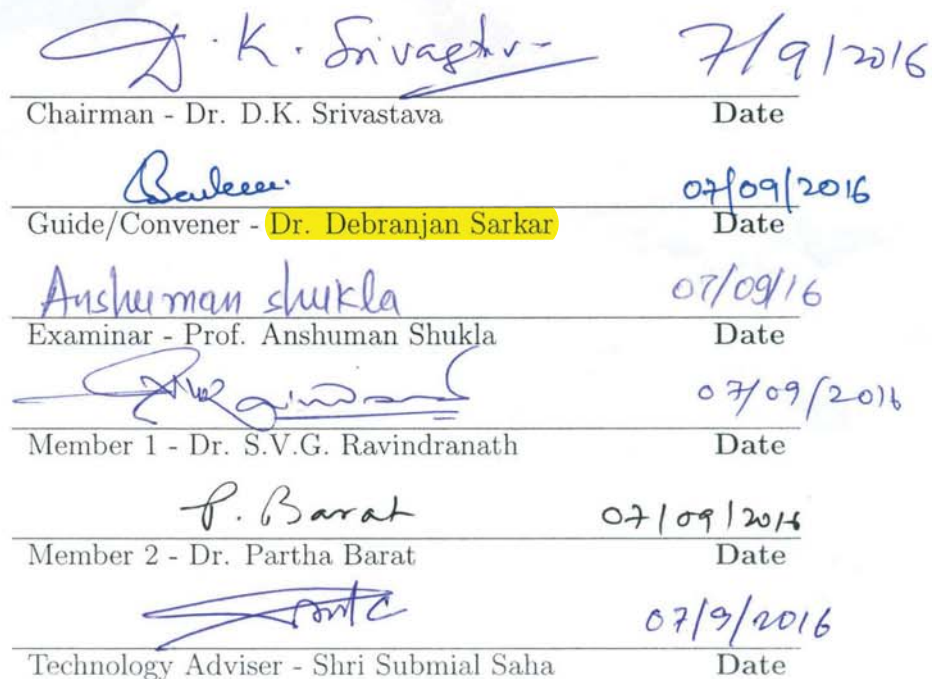 D. K. Srivastava 7/9/2016
Chairman - Dr. D.K. Srivastava Date
07/09/2016
Guide/Convener - Dr. Debranjan Sarkar Date
Anshuman shukla 07/09/16
Examinar - Prof. Anshuman Shukla Date
07/09/2016
Member 1 - Dr. S.V.G. Ravindranath Date
P. Barat 07/09/2016
Member 2 - Dr. Partha Barat Date
07/9/2016
Technology Adviser - Shri Submial Saha Date